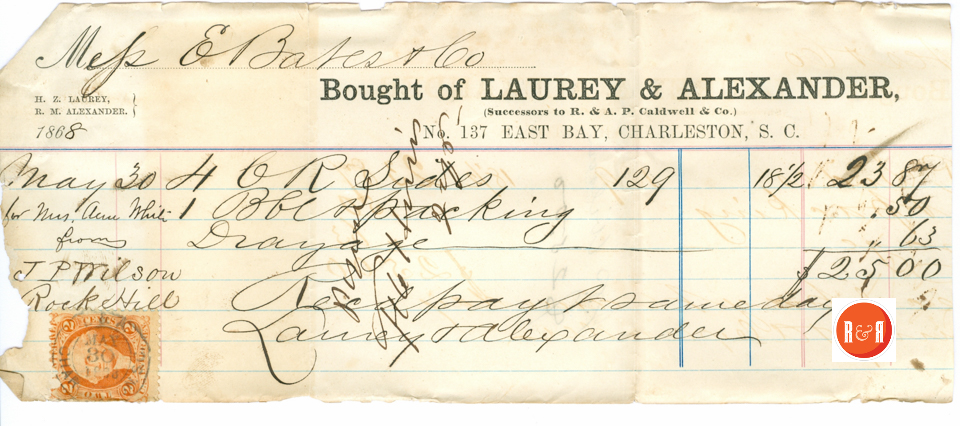 Mess E Bates & Co
Bought of LAUREY & ALEXANDER,
H. Z. LAUREY,
R. M. ALEXANDER.
(Successors to R. & A. P. Caldwell & Co.)
1868
No. 137 EAST BAY, CHARLESTON, S. C.
May 30 4 C R Sides 129 18 1/2 23 87
for Mrs. Ann White 1 Bbl & packing .50
from Drayage " 63
J P Wilson $25.00
Rock Hill Recd payt same day
Laurey & Alexander
MAY
30
R&R